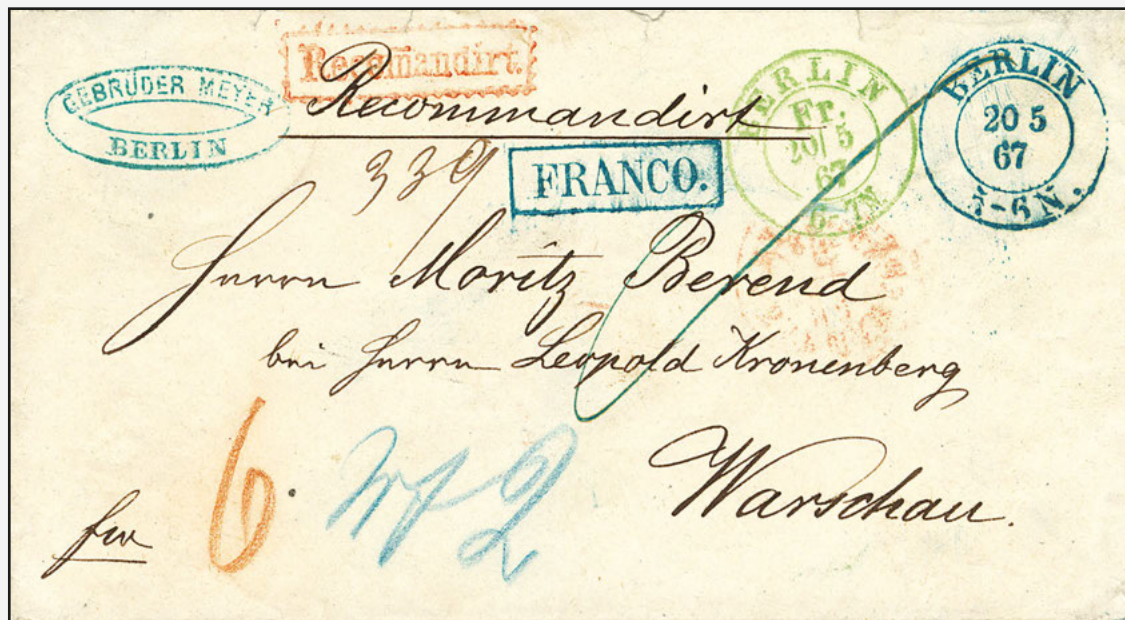 GEBRÜDER MEYER
BERLIN
Recomandirt.
Recommandirt
339
FRANCO.
BERLIN
Fr.
20/5
67
6-7N
BERLIN
20 5
67
5-6N.
Herrn Moritz Berend
bei Herrn Leopold Kronenberg
Warschau.
6